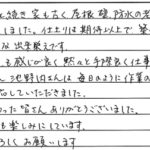 続き 家も古く 屋根 壁 防水の老
しました。仕上りは 期待以上で 
な出来栄えです。
も感じが良く 黙々と 手際良く仕事
地野内さんは 毎日のように 作業の
していただきました。
った 皆さん ありがとうございました。
も楽しみにしています。
ろしく お願いします